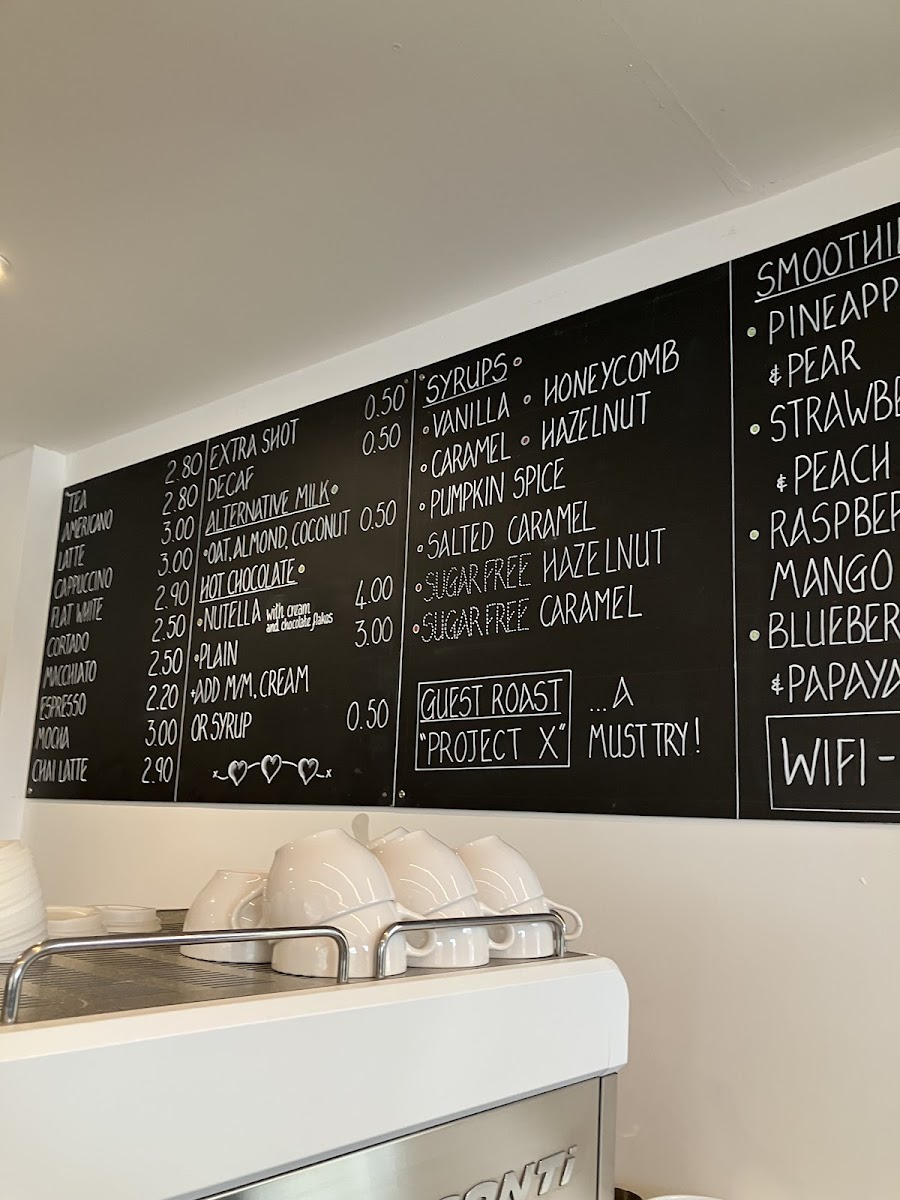 TEA 2.80
AMERICANO 2.80
LATTE 3.00
CAPPUCCINO 3.00
FLAT WHITE 2.90
CORTADO 2.50
MACCHIATO 2.50
ESPRESSO 2.20
MOCHA 3.00
CHAI LATTE 2.90
EXTRA SHOT 0.50
DECAF 0.50
ALTERNATIVE MILK
•OAT, ALMOND, COCONUT 0.50
HOT CHOCOLATE
•NUTELLA with cream and chocolate flakes 4.00
•PLAIN 3.00
+ADD M/M, CREAM
OR SYRUP 0.50
SYRUPS
•VANILLA • HONEYCOMB
•CARAMEL • HAZELNUT
•PUMPKIN SPICE
•SALTED CARAMEL
•SUGARFREE HAZELNUT
•SUGARFREE CARAMEL
GUEST ROAST ...A
"PROJECT X" MUST TRY!
SMOOTHI
•PINEAPP
& PEAR
•STRAWBE
& PEACH
•RASPBER
MANGO
•BLUEBER
& PAPAYA
WIFI-
ONTi